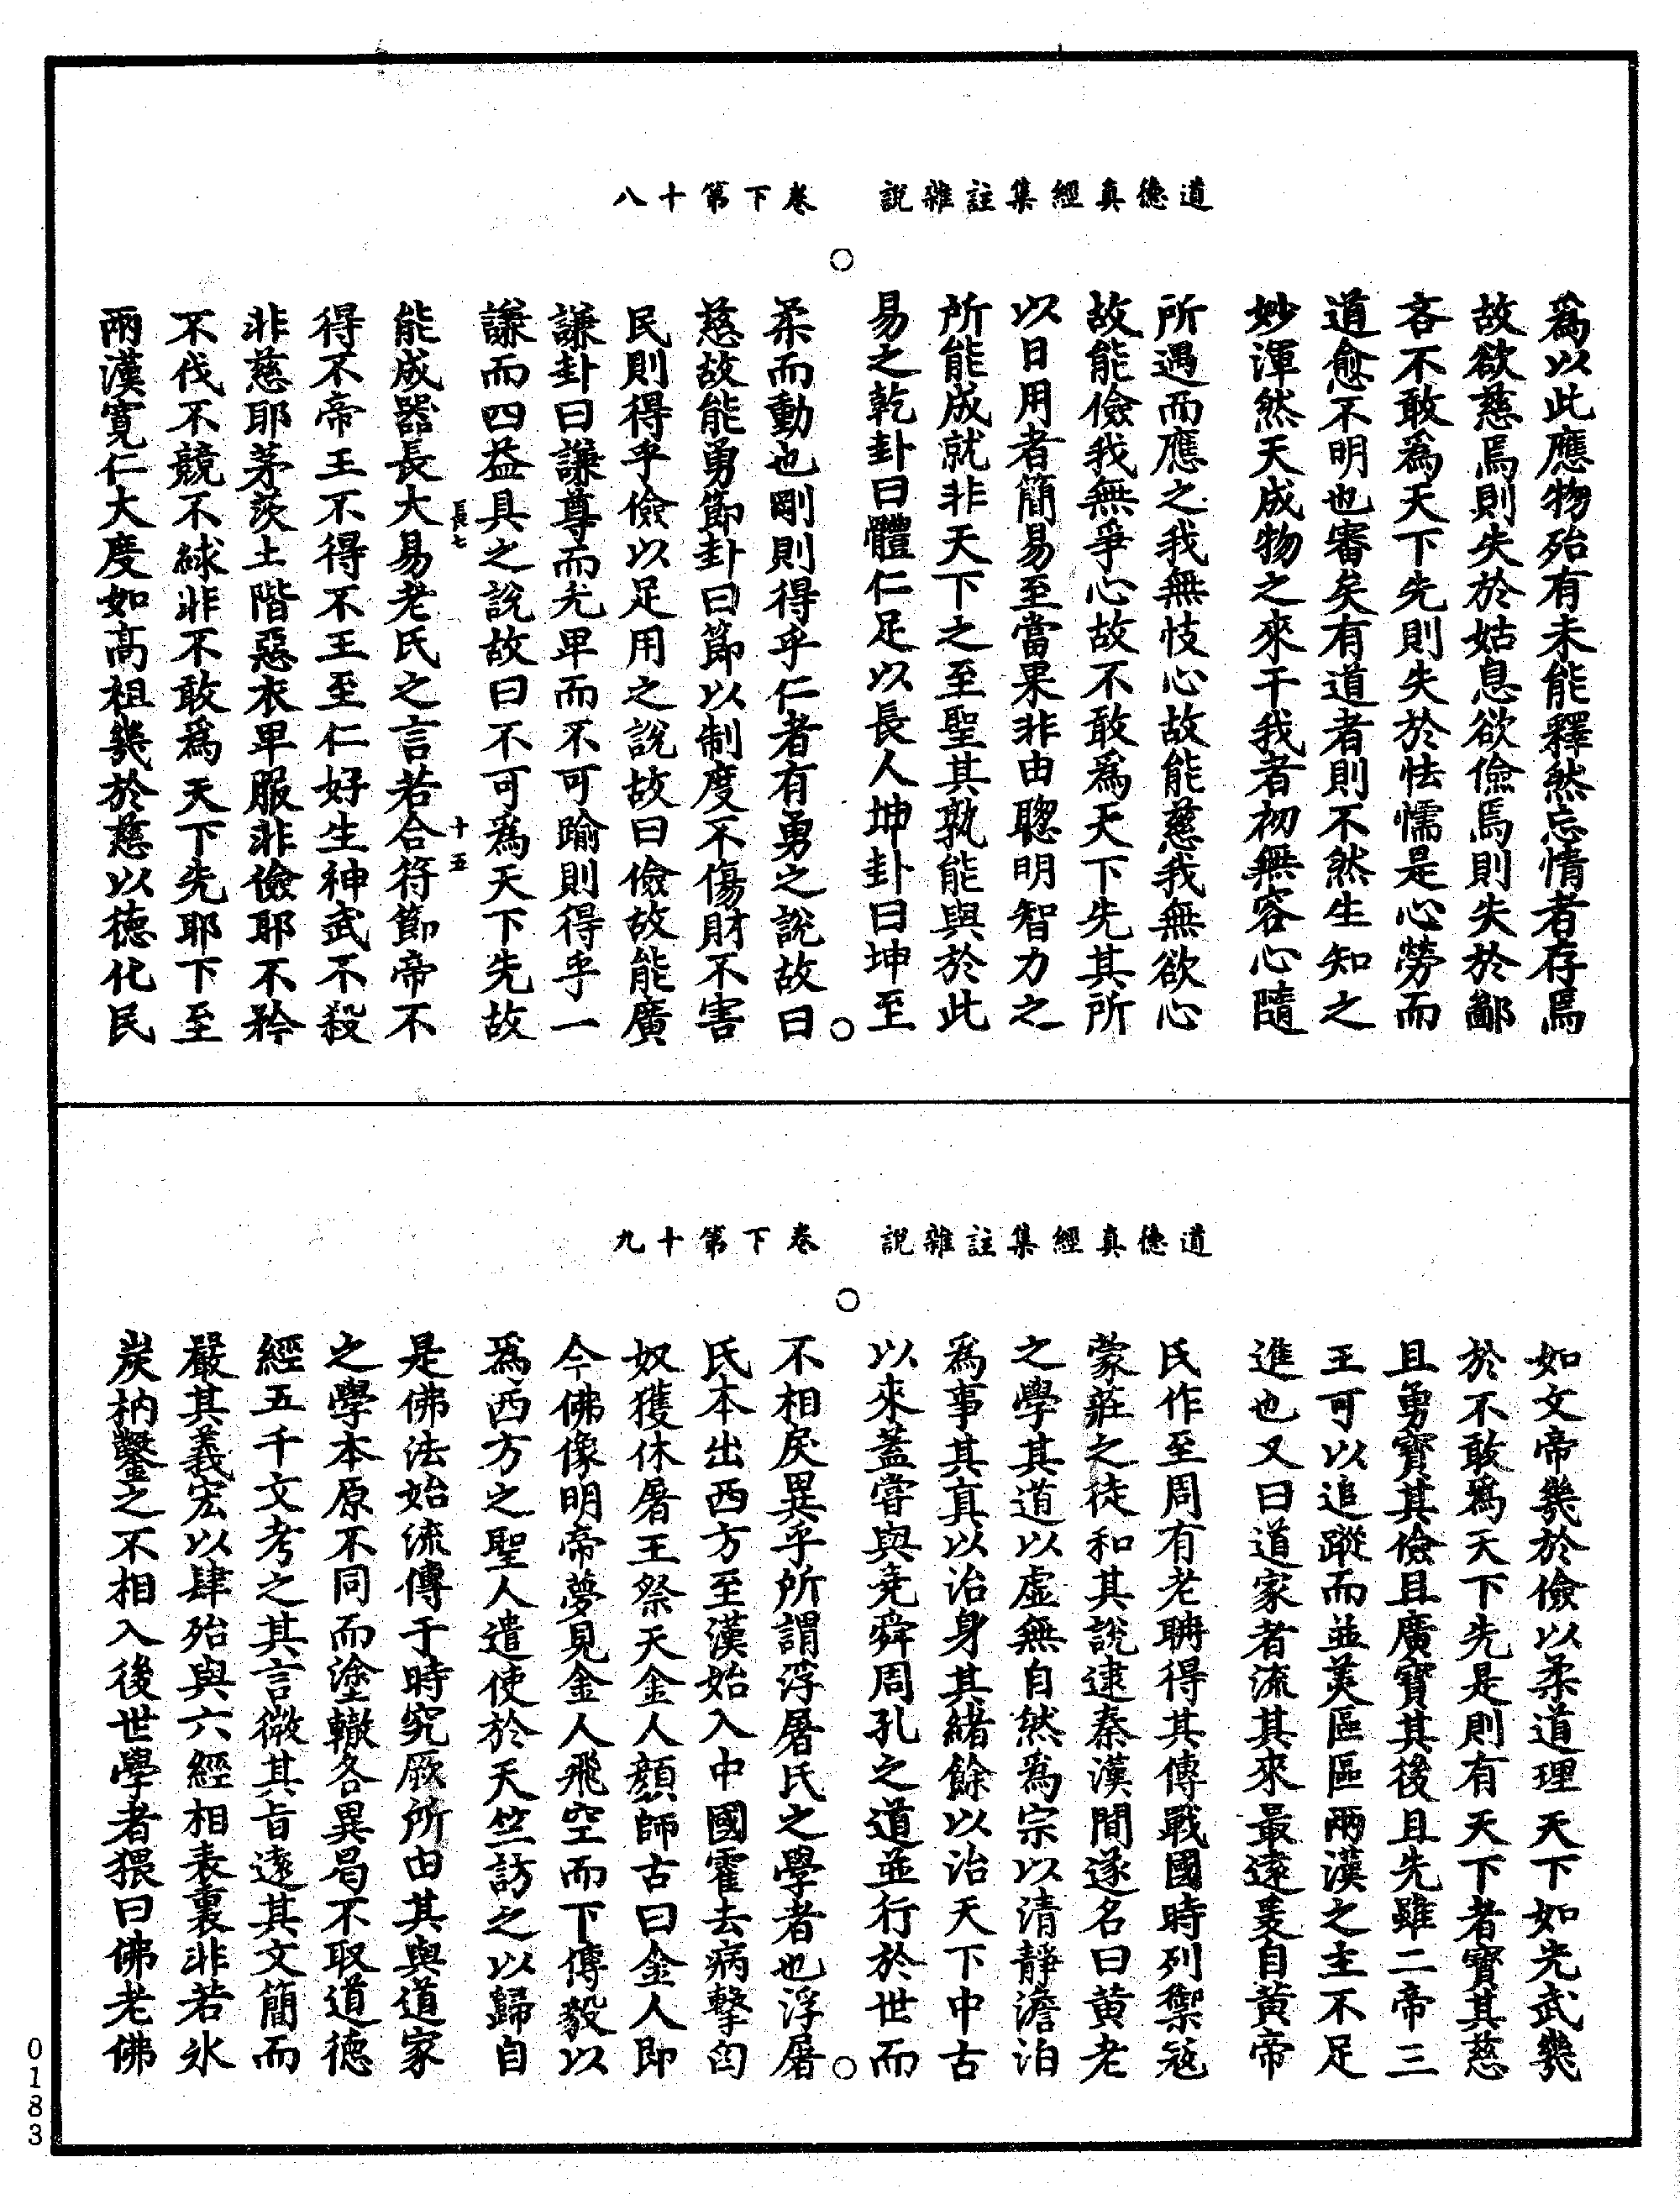 道德真經集註雜說　卷下第十八
爲以此應物殆有未能釋然忘情者存焉
故欲慈焉則失於姑息欲儉焉則失於鄙
吝不敢爲天下先則失於怯懦是心勞而
道愈不明也審矣有道者則不然生知之
妙渾然天成物之來干我者初無容心隨
所遇而應之我無忮心故能慈我無欲心
故能儉我無爭心故不敢爲天下先其所
以日用者簡易至當果非由聰明智力之
所能成就非天下之至聖其孰能與於此
易之乾卦曰體仁足以長人坤卦曰坤至
柔而動也剛則得乎仁者有勇之說故曰
慈故能勇節卦曰節以制度不傷財不害
民則得乎儉以足用之說故曰儉故能廣
謙卦曰謙尊而光卑而不可踰則得乎一
謙而四益具之說故曰不可爲天下先故
能成器長大易老氏之言若合符節帝不
長七　十五
得不帝王不得不王至仁好生神武不殺
非慈耶茅茨土階惡衣卑服非儉耶不矜
不伐不競不絿非不敢爲天下先耶下至
兩漢寬仁大度如高祖幾於慈以德化民
道德真經集註雜說　卷下第十九
如文帝幾於儉以柔道理天下如光武幾
於不敢爲天下先是則有天下者寶其慈
且勇寶其儉且廣寶其後且先雖二帝三
王可以追蹤而並美區區兩漢之主不足
進也又曰道家者流其來最遠爰自黃帝
氏作至周有老聃得其傳戰國時列禦寇
蒙莊之徒和其說逮秦漢間遂名曰黃老
之學其道以虛無自然爲宗以清靜澹泊
爲事其真以治身其緒餘以治天下中古
以來蓋嘗與堯舜周孔之道並行於世而
不相戾異乎所謂浮屠氏之學者也浮屠
氏本出西方至漢始入中國霍去病擊匈
奴獲休屠王祭天金人顏師古曰金人即
今佛像明帝夢見金人飛空而下傅毅以
爲西方之聖人遣使於天竺訪之以歸自
是佛法始流傳于時究厥所由其與道家
之學本原不同而塗轍各異曷不取道德
經五千文考之其言微其旨遠其文簡而
嚴其義宏以肆殆與六經相表裏非若氷
炭枘鑿之不相入後世學者猥曰佛老佛
0183